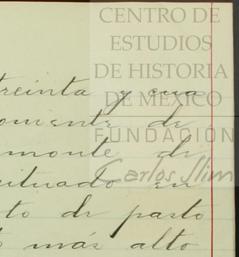 CENTRO DE
ESTUDIOS
DE HISTORIA
DE MÉXICO
FUNDACIÓN
Carlos Slim
treinta y cua
omiente de
monte de
situado en
to de pasto
más alto